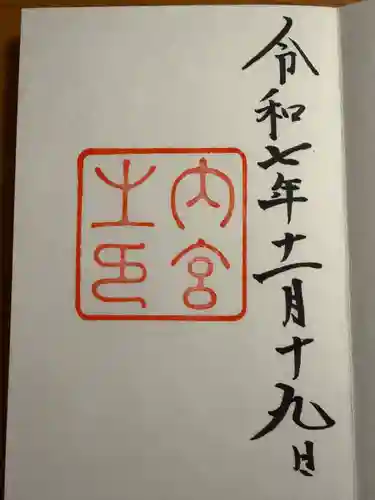 令和七年十一月十九日
内宮
之印